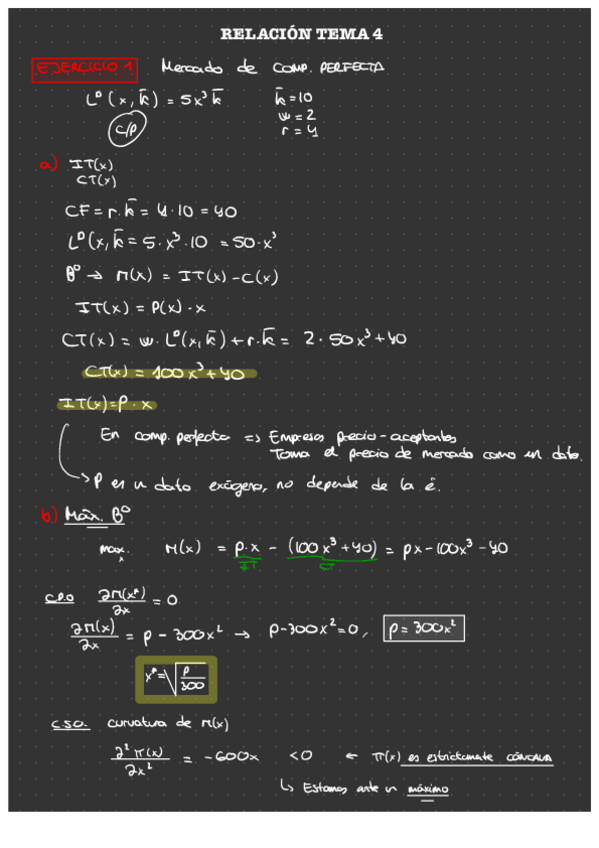 RELACIÓN TEMA 4
EJERCICIO 1 Mercado de COMP. PERFECTA
L^D (x, k̄) = 5x³ k̄ k̄ = 10
w = 2
c/p r = 4
a) IT(x)
CT(x)
CF = r. k̄ = 4 · 10 = 40
L^D(x, k̄ = 5 · x³ · 10 = 50 · x³
B^o → Π(x) = IT(x) - C(x)
IT(x) = P(x) · x
CT(x) = w. L^D(x, k̄) + r. k̄ = 2 · 50x³ + 40
CT(x) = 100x³ + 40
IT(x) = P · x
En comp. perfecta => Empresas precio-aceptantes
Toma el precio de mercado como un dato.
→ P es un dato exógeno, no depende de la é.
b) Máx. B^o
max. Π(x) = p·x - (100x³ + 40) = px - 100x³ - 40
x
IT CT
C.P.O ∂Π(x*)/∂x = 0
∂Π(x)/∂x = p - 300x² → p - 300x² = 0, p = 300x²
x* = √(p/300)
C.S.O. curvatura de Π(x)
∂²Π(x)/∂x² = -600x < 0 ← Π(x) es estrictamente CÓNCAVA
↳ Estamos ante un máximo